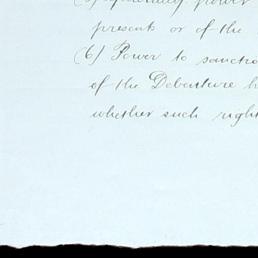 power
present or of the
(6) Power to sanctio
of the Debenture h
whether such right